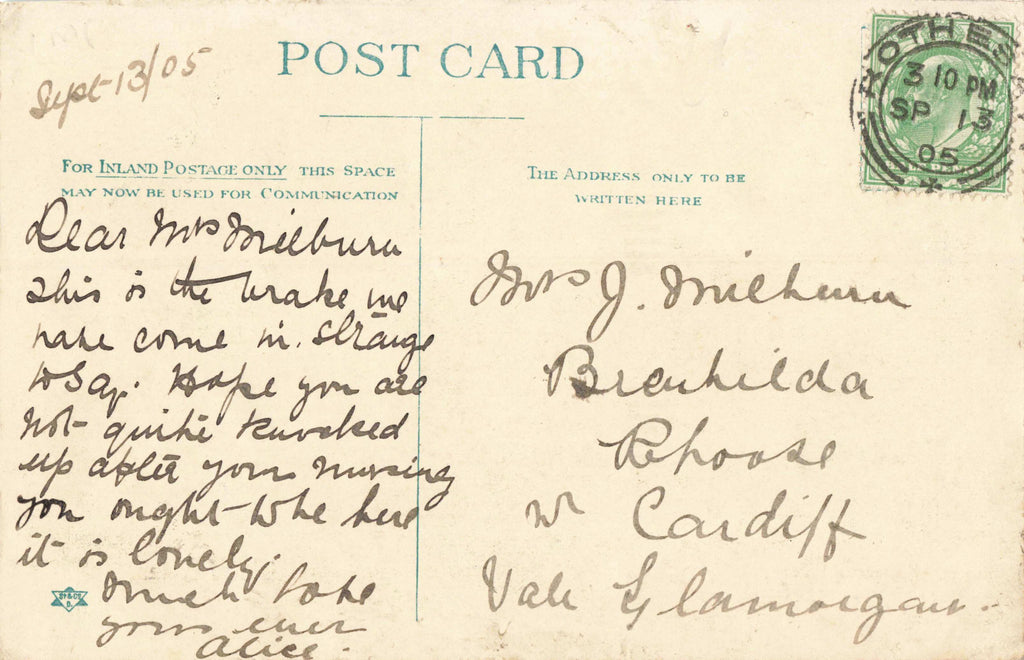 Sept 13/05
POST CARD
ROTHES
3 10 PM
SP 13
05
FOR INLAND POSTAGE ONLY THIS SPACE
MAY NOW BE USED FOR COMMUNICATION
THE ADDRESS ONLY TO BE
WRITTEN HERE
Dear Mrs Milburn
this is the brake we
have come in. Strange
to say. Hope you are
not quite knocked
up after your nursing
you ought to be here
it is lovely.
Much love
yours ever
Alice.
Mrs J. Milburn
Brenhilda
Rhoose
Nr Cardiff
Vale Glamorgan.